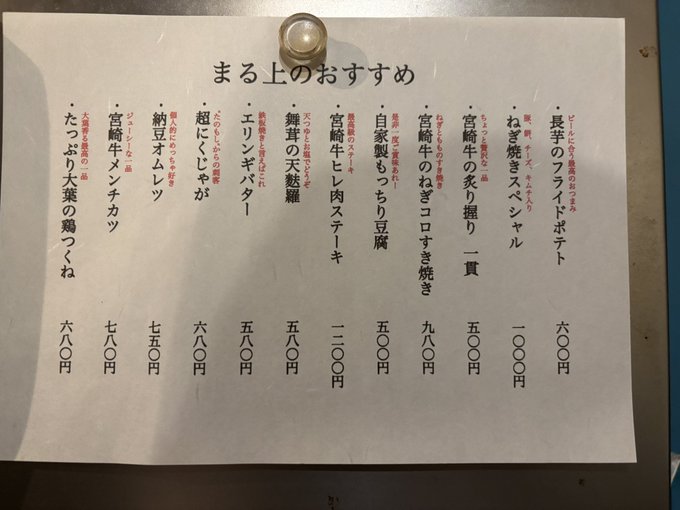 まる上のおすすめ
ビールに合う最高のおつまみ
・長芋のフライドポテト 六〇〇円
豚、餅、チーズ、キムチ入り
・ねぎ焼きスペシャル 一〇〇〇円
ちょっと贅沢な一品
・宮崎牛の炙り握り 一貫 五〇〇円
ねぎともものすき焼き
・宮崎牛のねぎコロすき焼き 九八〇円
是非一度ご賞味あれー
・自家製もっちり豆腐 五〇〇円
最高級のステーキ
・宮崎牛ヒレ肉ステーキ 一二〇〇円
天つゆとお塩でどうぞ
・舞茸の天麩羅 五八〇円
鉄板焼きと言えばこれ
・エリンギバター 五八〇円
"たのもし"からの刺客
・超にくじゃが 六八〇円
個人的にめっちゃ好き
・納豆オムレツ 七五〇円
ジューシーな一品
・宮崎牛メンチカツ 七八〇円
大葉香る最高の一品
・たっぷり大葉の鶏つくね 六八〇円